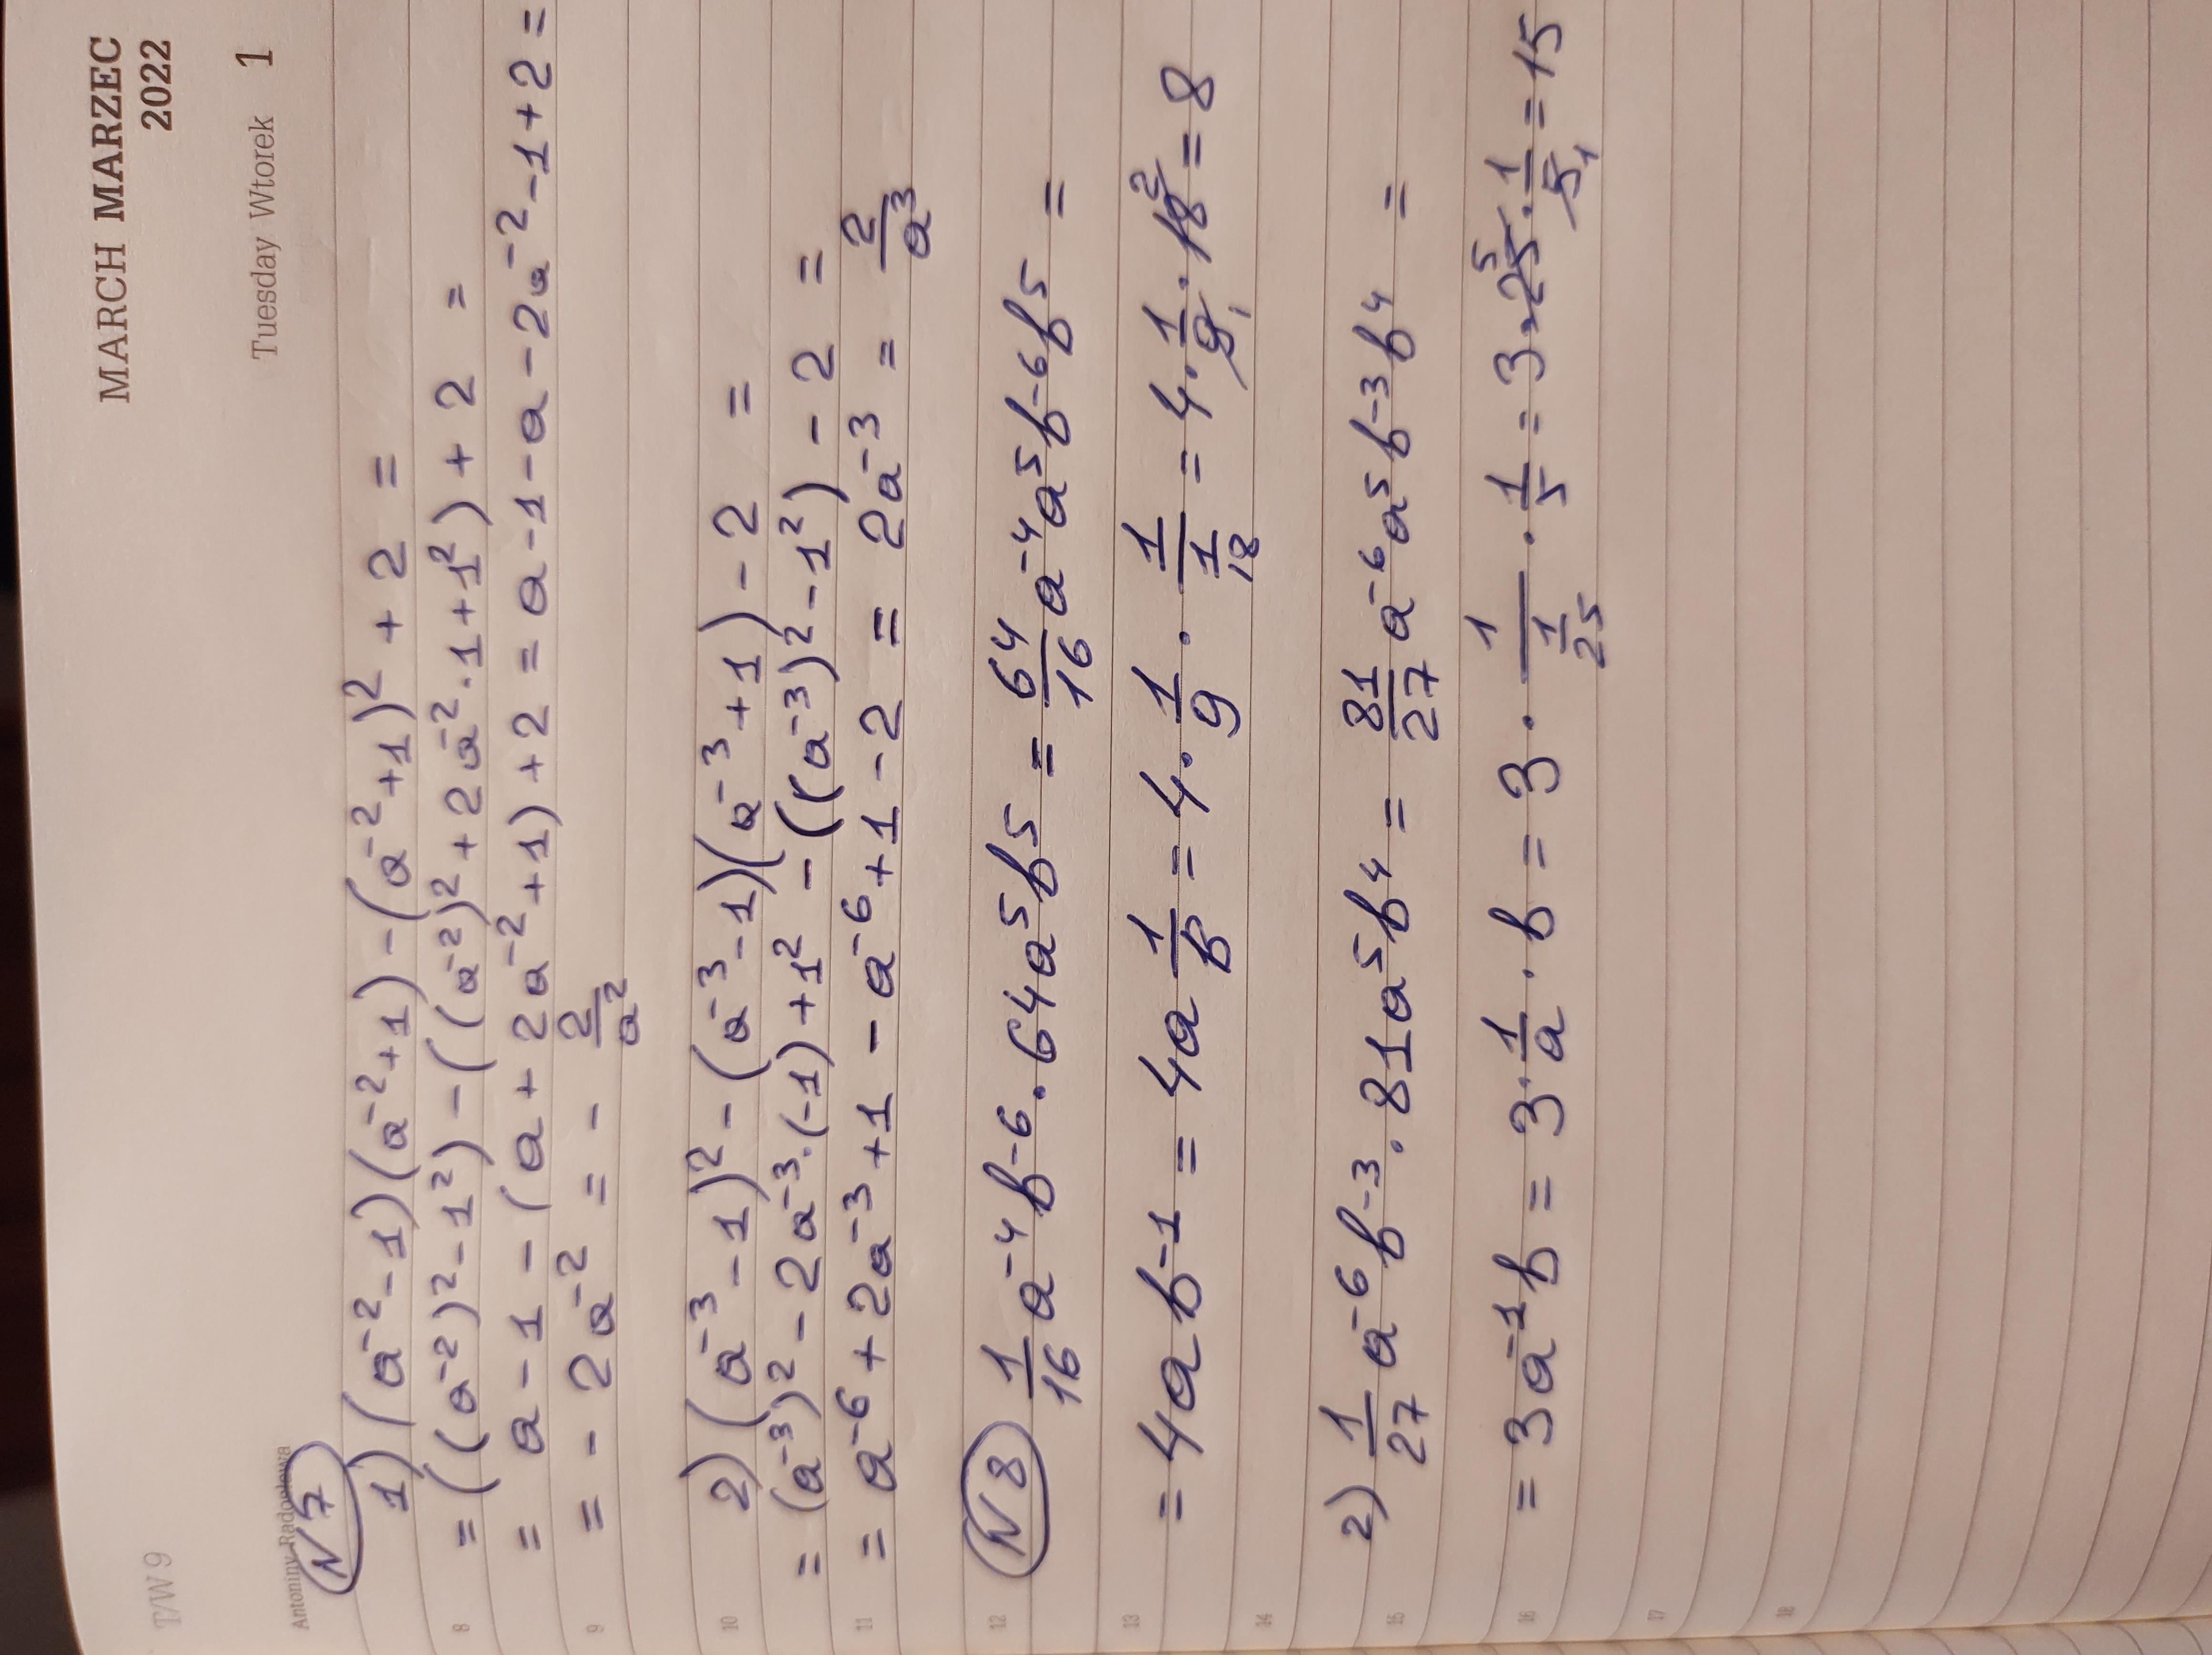 MARCH MARZEC
2022
T/W 9
Tuesday Wtorek 1
Antoniny Radosława
N7
1) (a⁻² - 1)(a⁻² + 1) - (a⁻² + 1)² + 2 =
8
= ((a⁻²)² - 1²) - ((a⁻²)² + 2a⁻² · 1 + 1²) + 2 =
= a - 1 - (a + 2a⁻² + 1) + 2 = a - 1 - a - 2a⁻² - 1 + 2 =
9
= - 2a⁻² = - 2/a²
10
2) (a⁻³ - 1)² - (a⁻³ - 1)(a⁻³ + 1) - 2 =
= (a⁻³)² - 2a⁻³ · (-1) + 1² - ((a⁻³)² - 1²) - 2 =
11
= a⁻⁶ + 2a⁻³ + 1 - a⁻⁶ + 1 - 2 = 2a⁻³ = 2/a³
12
N8 1/16 a⁻⁴b⁻⁶ · 64a⁵b⁵ = 64/16 a⁻⁴a⁵b⁻⁶b⁵ =
13
= 4ab⁻¹ = 4a 1/b = 4 · 1/9 · 1/(1/18) = 4 · 1/9₁ · 18² = 8
14
15
2) 1/27 a⁻⁶b⁻³ · 81a⁵b⁴ = 81/27 a⁻⁶a⁵b⁻³b⁴ =
16
= 3a⁻¹b = 3 · 1/a · b = 3 · 1/(1/25) · 1/5 = 3 · 25⁵ · 1/5₁ = 15
17
18